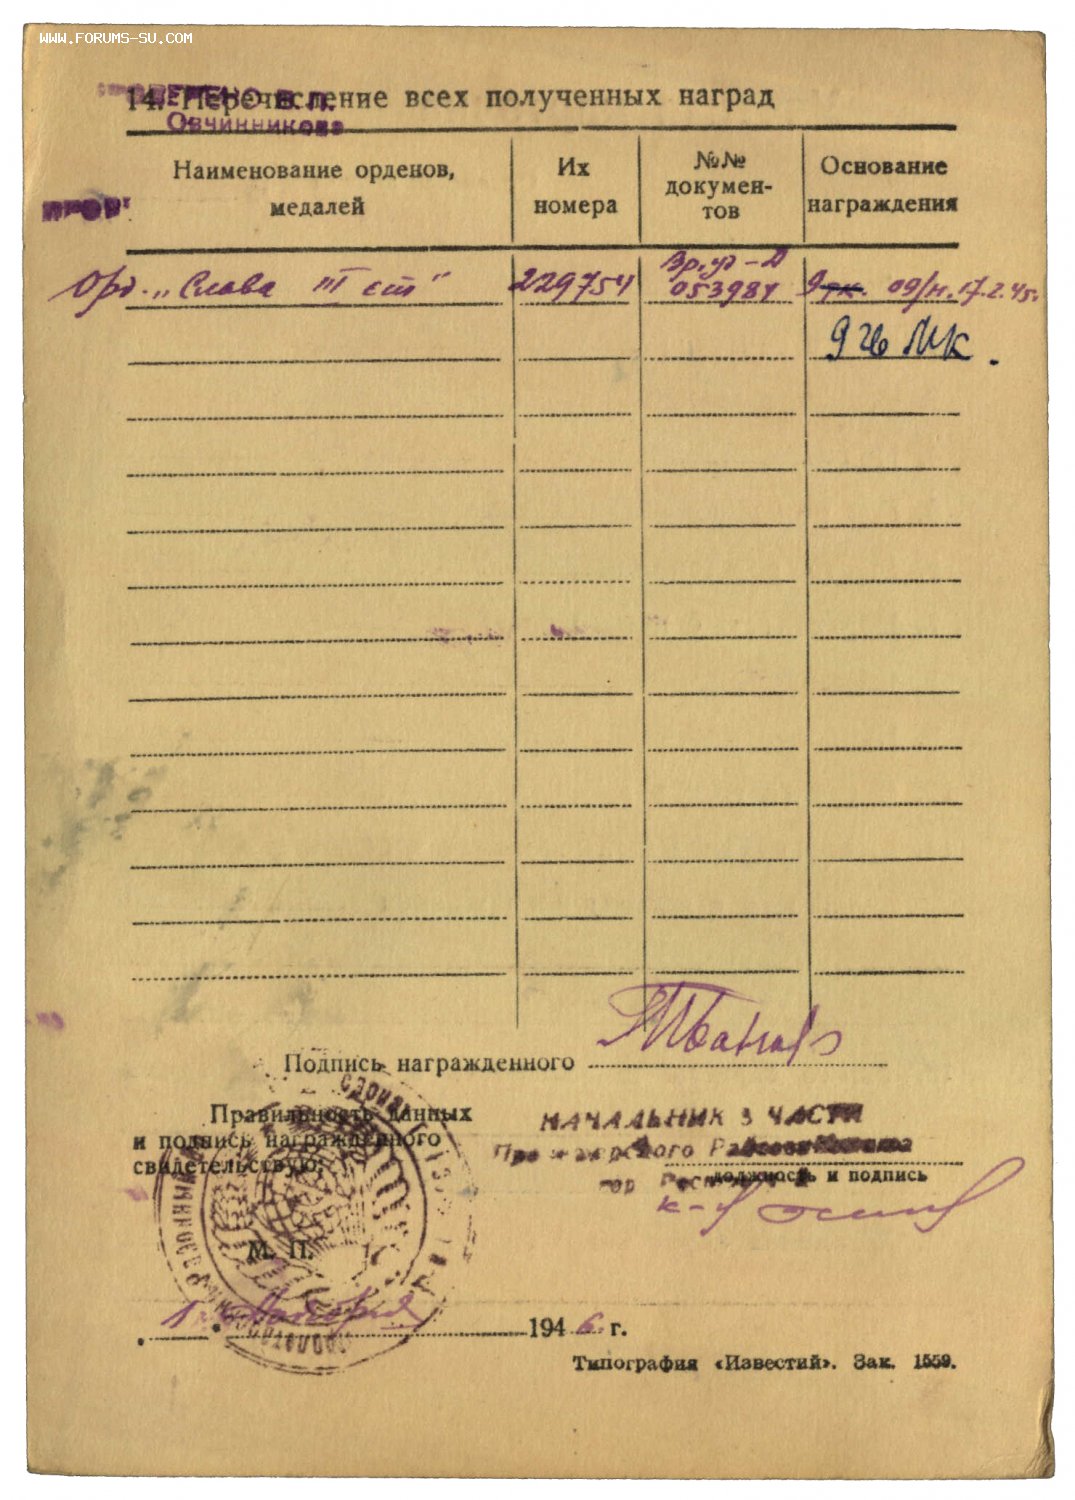 WWW.FORUMS-SU.COM
14. Перечисление всех полученных наград
Овчинникова
Наименование орденов, медалей
Их номера
№№ документов
Основание награждения
Орд. „Слава III ст"
229754
Вр. уд-А 053981
09/н. 17.2.45г.
9 гв МК.
Подпись награжденного
Правильность данных
и подпись награжденного
свидетельствую:
НАЧАЛЬНИК 3 ЧАСТИ
должность и подпись
М. П.
Ноября 1946 г.
Типография «Известий». Зак. 1559.